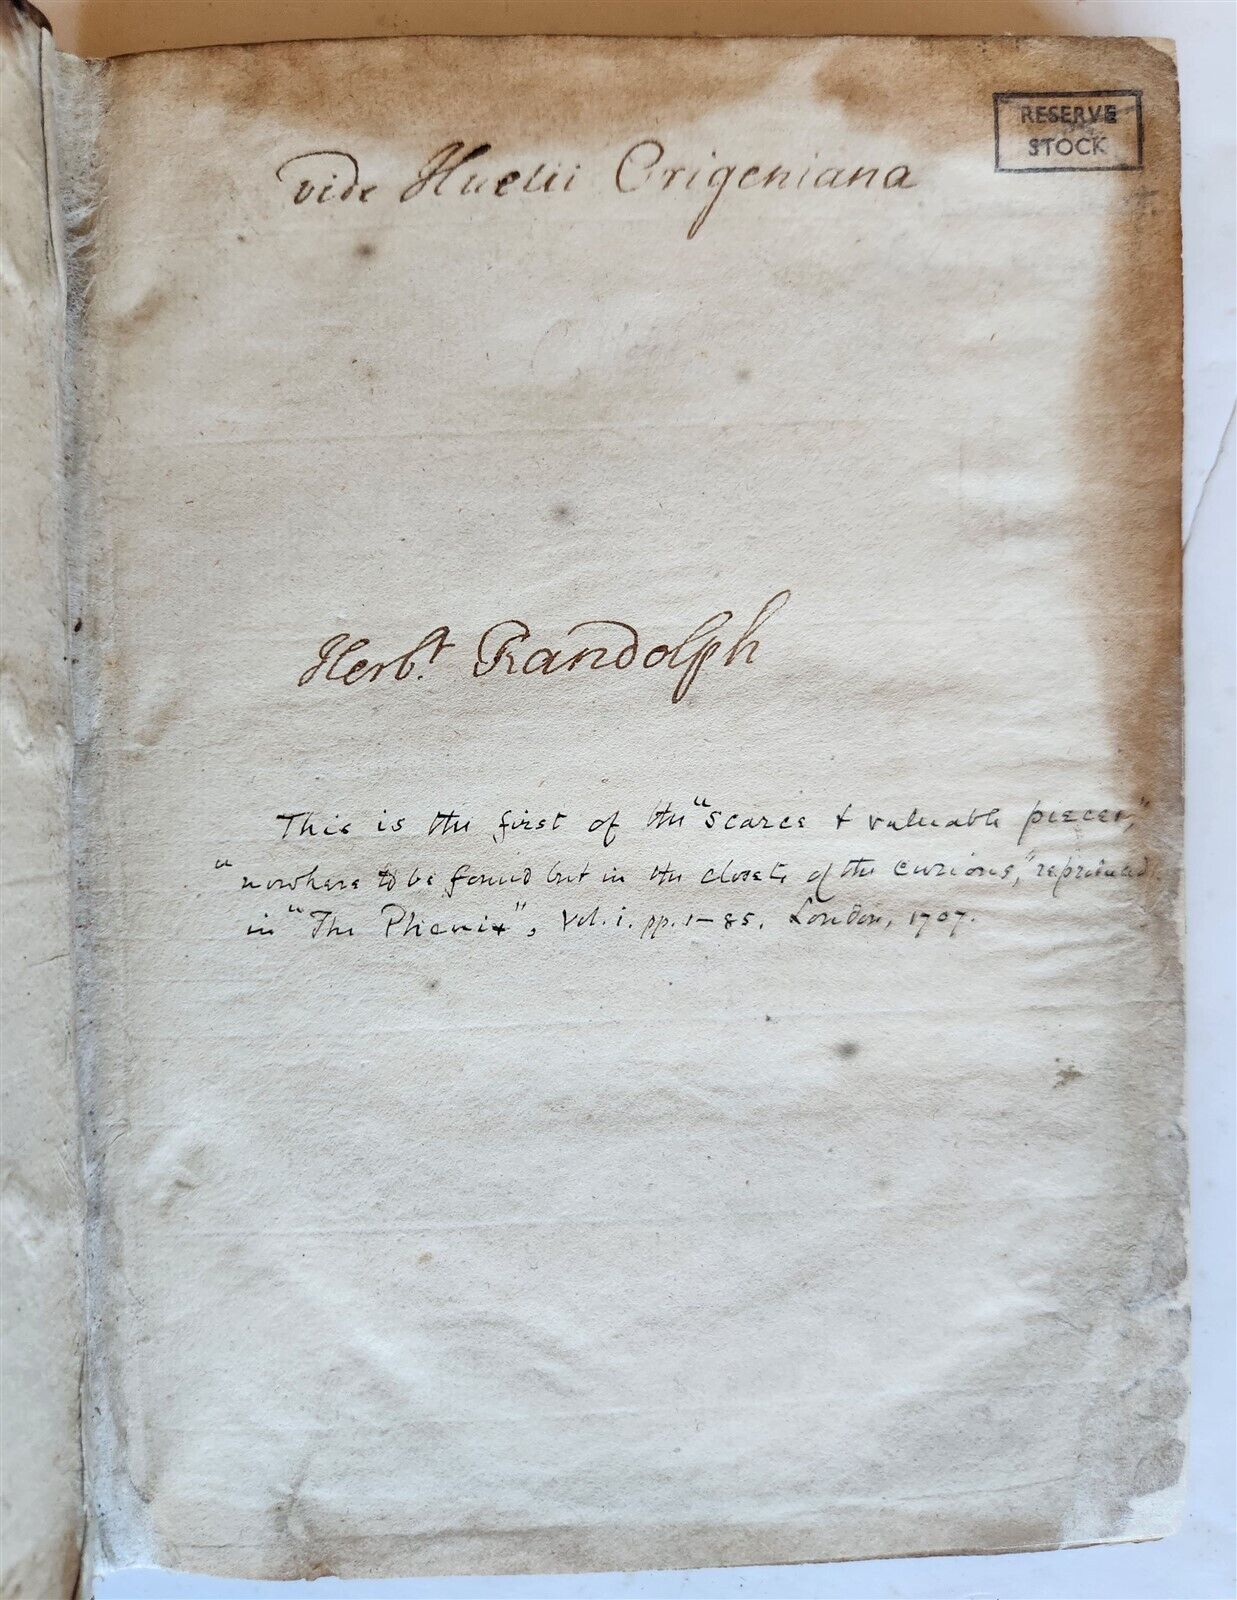 RESERVE
STOCK
vide Huetii Origeniana
Herb.t Randolph
This is the first of the "scarce & valuable pieces,"
"nowhere to be found but in the closets of the curious," reprinted
in "The Phenix", Vol. i. pp. 1-85. London, 1707.